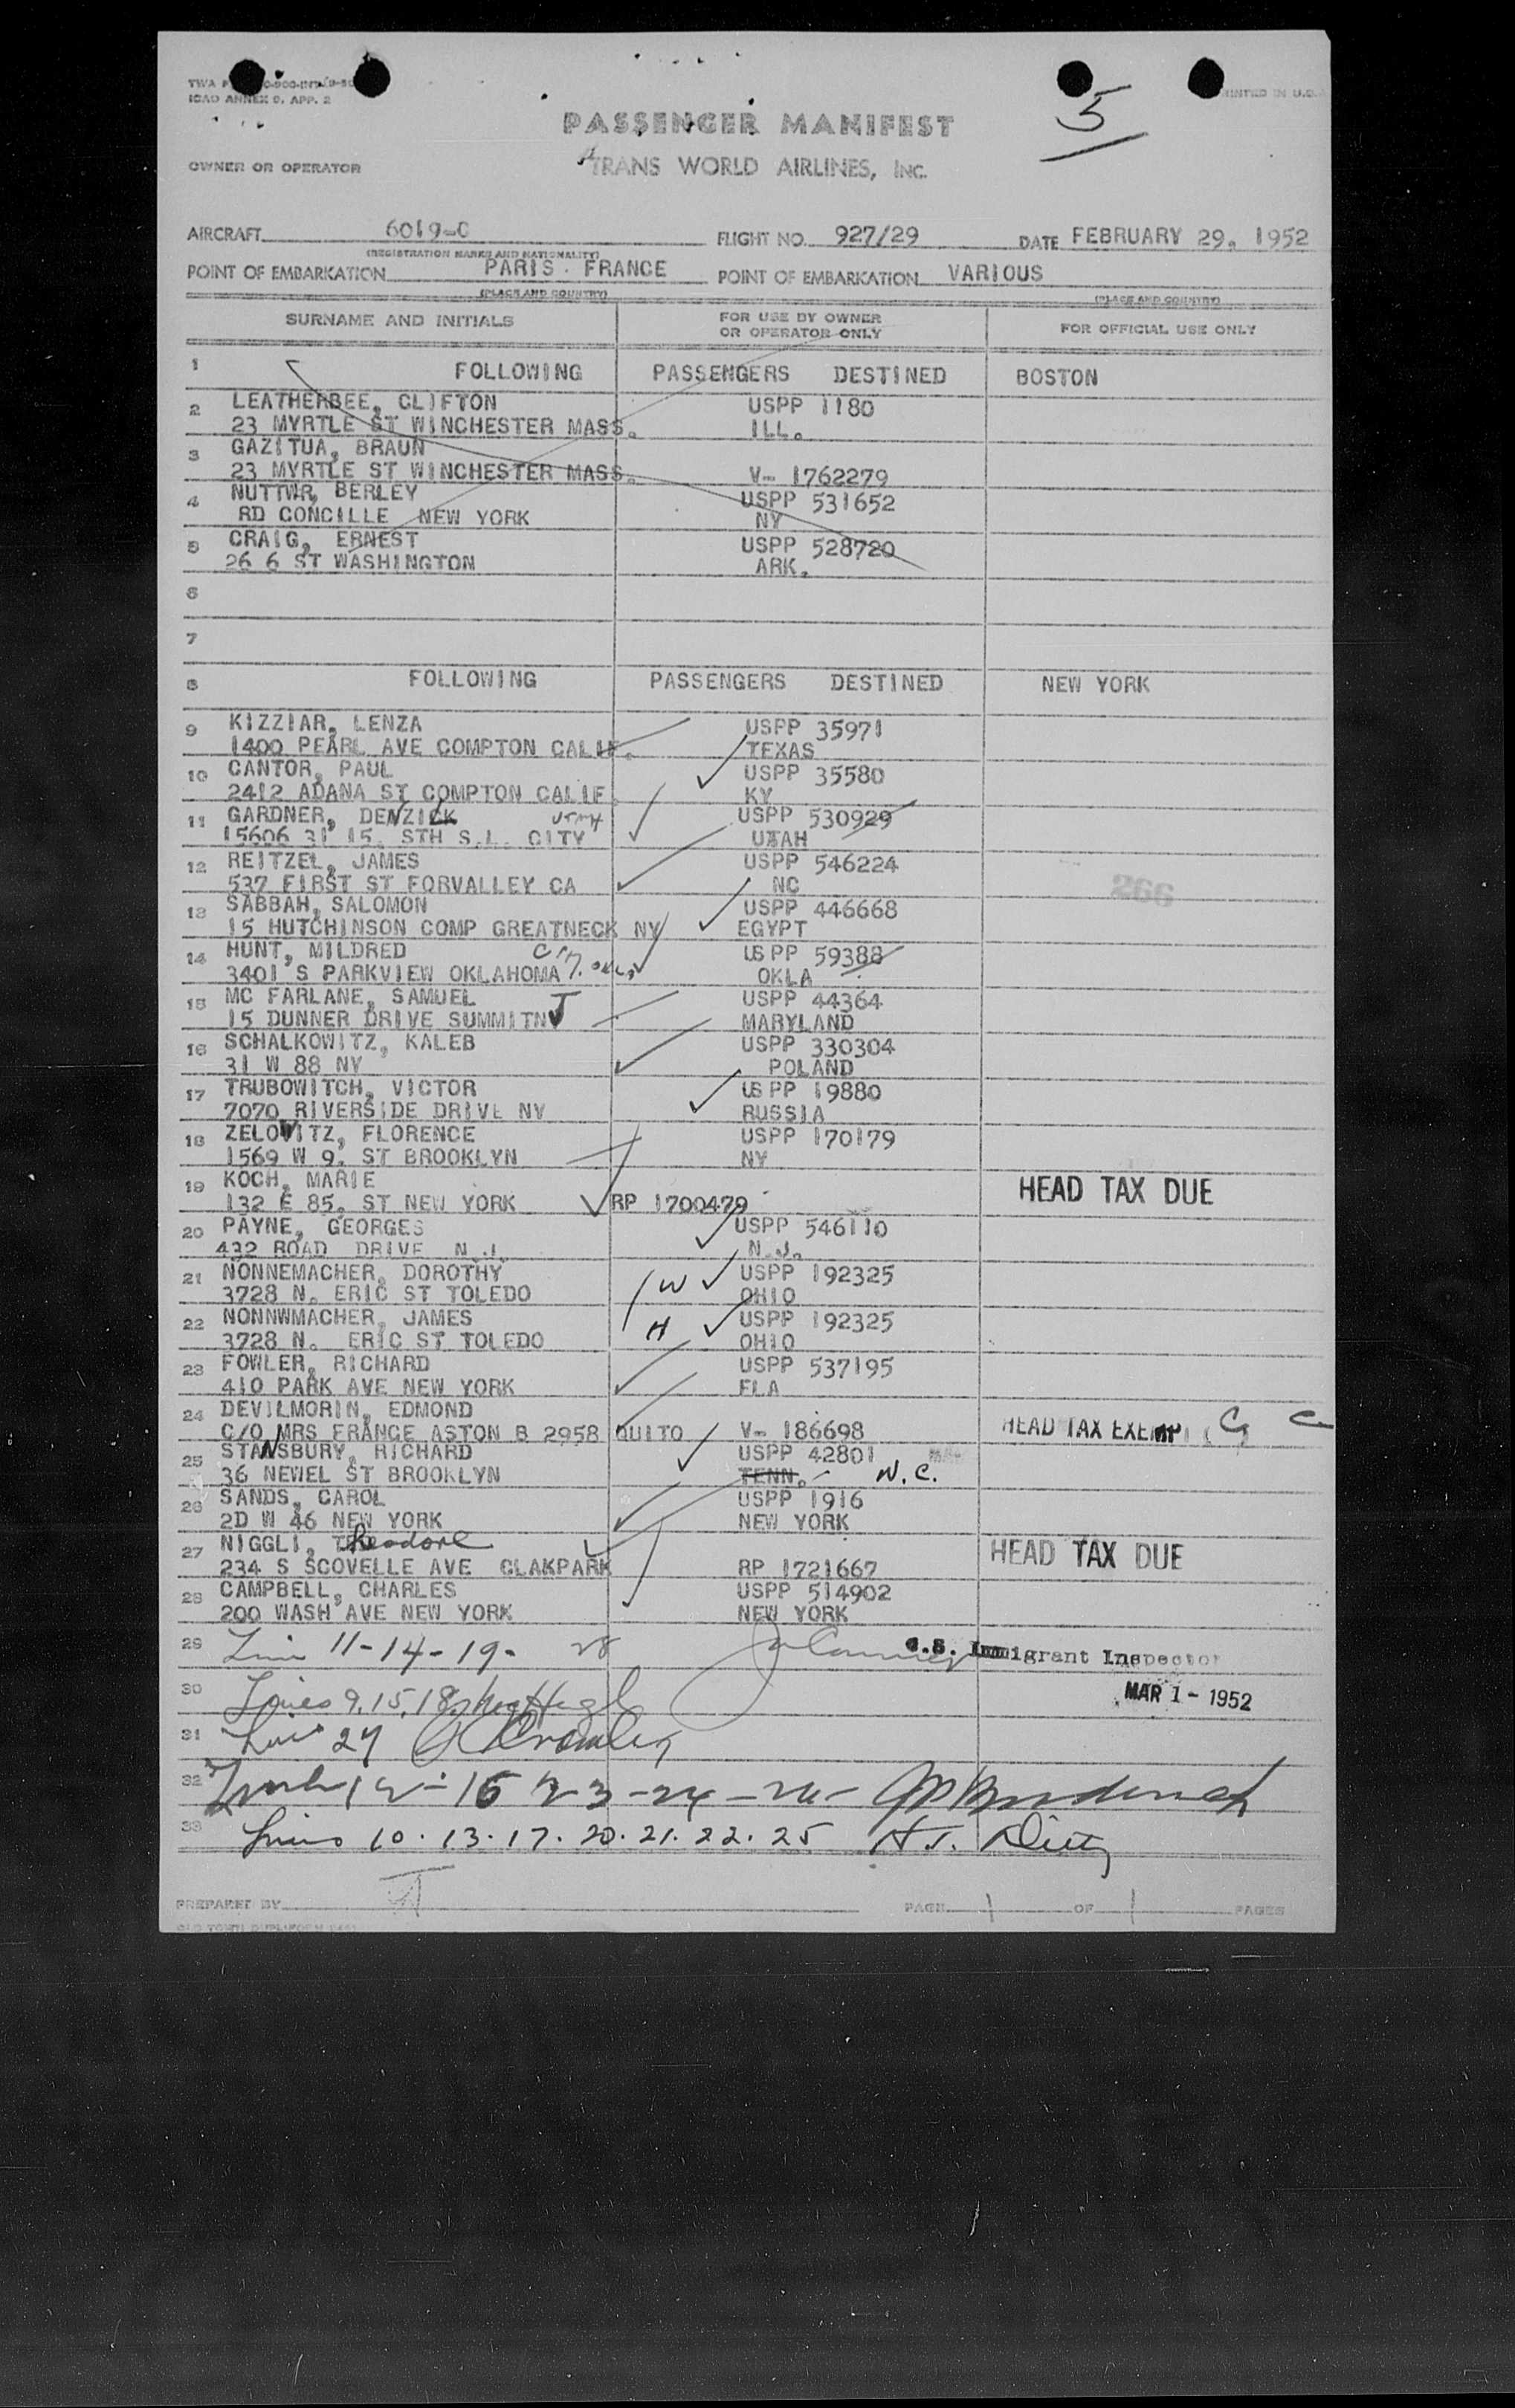 ICAO ANNEX 9. APP. 2
PRINTED IN U.S.A.
5
PASSENGER MANIFEST
OWNER OR OPERATOR TRANS WORLD AIRLINES, INC.
AIRCRAFT 6019-C FLIGHT NO. 927/29 DATE FEBRUARY 29. 1952
(REGISTRATION MARKS AND NATIONALITY)
POINT OF EMBARKATION PARIS. FRANCE POINT OF EMBARKATION VARIOUS
(PLACE AND COUNTRY) (PLACE AND COUNTRY)
SURNAME AND INITIALS FOR USE BY OWNER OR OPERATOR ONLY FOR OFFICIAL USE ONLY
1 FOLLOWING PASSENGERS DESTINED BOSTON
2 LEATHERBEE, CLIFTON USPP 1180
23 MYRTLE ST WINCHESTER MASS. ILL.
3 GAZITUA, BRAUN
23 MYRTLE ST WINCHESTER MASS. V- 1762279
4 NUTTWR, BERLEY USPP 531652
RD CONCILLE NEW YORK NY
5 CRAIG, ERNEST USPP 528720
26 6 ST WASHINGTON ARK.
6
7
8 FOLLOWING PASSENGERS DESTINED NEW YORK
9 KIZZIAR, LENZA USPP 35971
1400 PEARL AVE COMPTON CALIF. TEXAS
10 CANTOR, PAUL USPP 35580
2412 ADANA ST COMPTON CALIF. KY
11 GARDNER, DENZICK UTAH USPP 530929
15606 31 15. STH S.L. CITY UTAH
12 REITZEL, JAMES USPP 546224
537 FIRST ST FORVALLEY CA NC
266
13 SABBAH, SALOMON USPP 446668
15 HUTCHINSON COMP GREATNECK NY EGYPT
14 HUNT, MILDRED USPP 59388
3401 S PARKVIEW OKLAHOMA CITY. OKLA OKLA
15 MC FARLANE, SAMUEL USPP 44364
15 DUNNER DRIVE SUMMITNJ MARYLAND
16 SCHALKOWITZ, KALEB USPP 330304
31 W 88 NY POLAND
17 TRUBOWITCH, VICTOR USPP 19880
7070 RIVERSIDE DRIVE NY RUSSIA
18 ZELOWITZ, FLORENCE USPP 170179
1569 W 9. ST BROOKLYN NY
19 KOCH, MARIE HEAD TAX DUE
132 E 85. ST NEW YORK RP 1700479
20 PAYNE, GEORGES USPP 546110
432 ROAD DRIVE N.J. N.J.
21 NONNEMACHER, DOROTHY W USPP 192325
3728 N. ERIC ST TOLEDO OHIO
22 NONNWMACHER, JAMES H USPP 192325
3728 N. ERIC ST TOLEDO OHIO
23 FOWLER, RICHARD USPP 537195
410 PARK AVE NEW YORK FLA
24 DEVILMORIN, EDMOND
C/O MRS FRANCE ASTON B 2958 QUITO V- 186698 HEAD TAX EXEMPT
25 STANSBURY, RICHARD USPP 42801
36 NEWEL ST BROOKLYN TENN. N.C.
26 SANDS, CAROL USPP 1916
2D W 46 NEW YORK NEW YORK
27 NIGGLI, Theodore HEAD TAX DUE
234 S SCOVELLE AVE CLAKPARK RP 1721667
28 CAMPBELL, CHARLES USPP 514902
200 WASH AVE NEW YORK NEW YORK
29 Line 11-14-19- 28 U.S. Immigrant Inspector
30 Lines 9, 15, 18 MAR 1- 1952
31 Line 27
32 12-16 23-24-26-
33 Lines 10. 13. 17. 20. 21. 22. 25
PREPARED BY PAGE 1 OF 1 PAGES